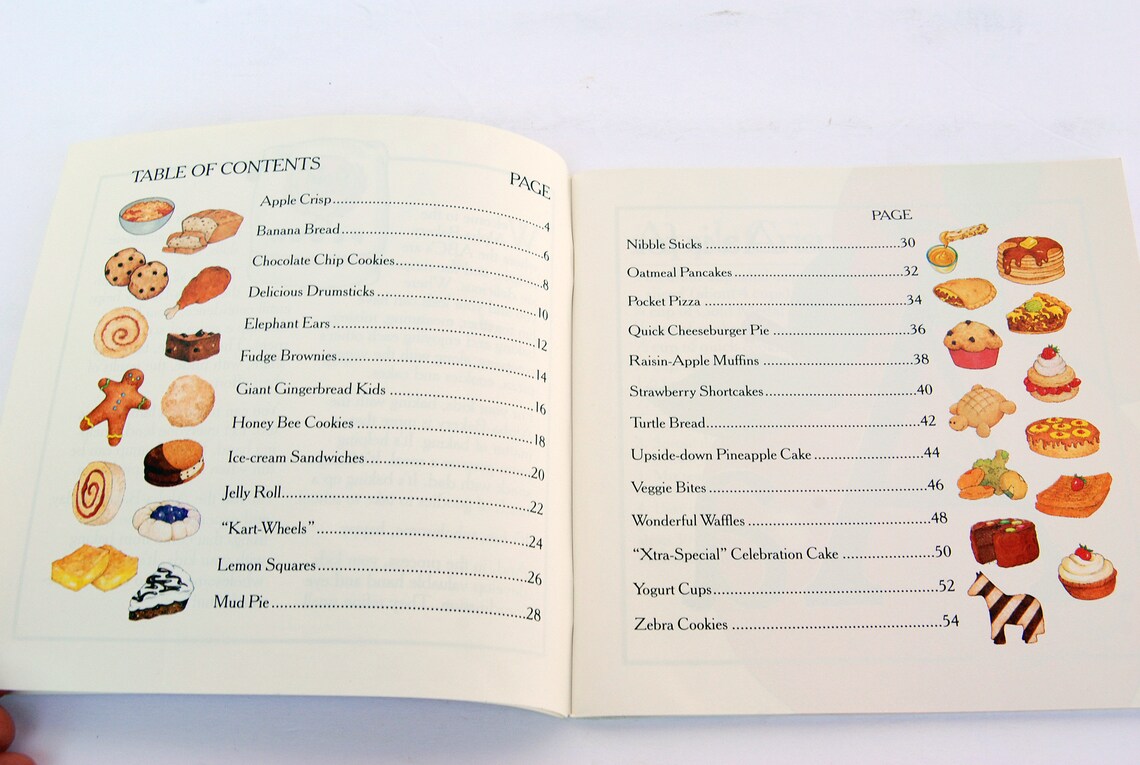 TABLE OF CONTENTS
PAGE
Apple Crisp....................4
Banana Bread....................6
Chocolate Chip Cookies....................8
Delicious Drumsticks....................10
Elephant Ears....................12
Fudge Brownies....................14
Giant Gingerbread Kids....................16
Honey Bee Cookies....................18
Ice-cream Sandwiches....................20
Jelly Roll....................22
“Kart-Wheels”....................24
Lemon Squares....................26
Mud Pie....................28
PAGE
Nibble Sticks....................30
Oatmeal Pancakes....................32
Pocket Pizza....................34
Quick Cheeseburger Pie....................36
Raisin-Apple Muffins....................38
Strawberry Shortcakes....................40
Turtle Bread....................42
Upside-down Pineapple Cake....................44
Veggie Bites....................46
Wonderful Waffles....................48
“Xtra-Special” Celebration Cake....................50
Yogurt Cups....................52
Zebra Cookies....................54